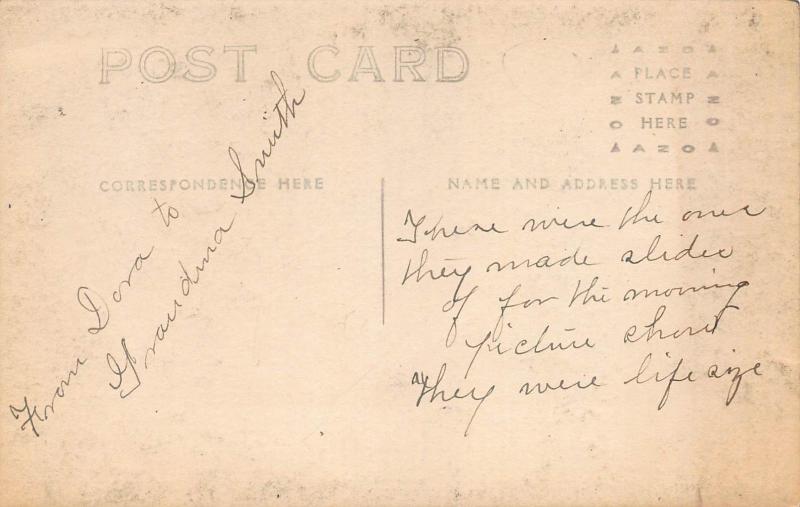 POST CARD
AZO
PLACE
STAMP
HERE
AZO
CORRESPONDENCE HERE
NAME AND ADDRESS HERE
From Dora to
Grandma Smith
These were the ones
they made slides
of for the moving
picture show
They were life size